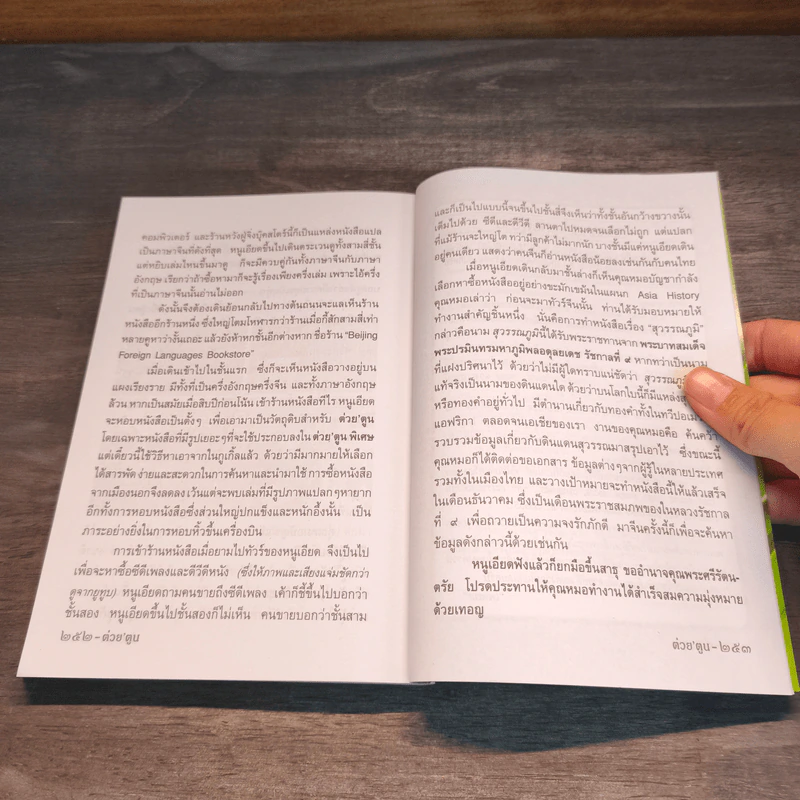 คอมพิวเตอร์ และร้านหวังฝูจิ่งบุ๊คสโตร์นี้ก็เป็นแหล่งหนังสือแปล
เป็นภาษาจีนที่ดังที่สุด หนูเอียดขึ้นไปเดินตระเวนดูทั้งสามสี่ชั้น
แต่หยิบเล่มไหนขึ้นมาดู ก็จะมีควบคู่กันทั้งภาษาจีนกับภาษา
อังกฤษ เรียกว่าถ้าซื้อหามาก็จะรู้เรื่องเพียงครึ่งเล่ม เพราะไอ้ครึ่ง
ที่เป็นภาษาจีนนั้นอ่านไม่ออก
ดังนั้นจึงต้องเดินย้อนกลับไปทางต้นถนนจะแลเห็นร้าน
หนังสืออีกร้านหนึ่ง ซึ่งใหญ่โตมโหฬารกว่าร้านเมื่อกี้สักสามสี่เท่า
หลายคูหาว่างั้นเถอะ แล้วยังห้าหกชั้นอีกต่างหาก ชื่อร้าน "Beijing
Foreign Languages Bookstore"
เมื่อเดินเข้าไปในชั้นแรก ซึ่งก็จะเห็นหนังสือวางอยู่บน
แผงเรียงราย มีทั้งที่เป็นครึ่งอังกฤษครึ่งจีน และทั้งภาษาอังกฤษ
ล้วน หากเป็นสมัยเมื่อสิบปีก่อนโน้น เข้าร้านหนังสือทีไร หนูเอียด
จะหอบหนังสือเป็นตั้งๆ เพื่อเอามาเป็นวัตถุดิบสำหรับ ต่วย'ตูน
โดยเฉพาะหนังสือที่มีรูปเยอะๆที่จะใช้ประกอบลงใน ต่วย'ตูน พิเศษ
แต่เดี๋ยวนี้ใช้วิธีหาเอาจากในกูเกิ้ลแล้ว ด้วยว่ามีมากมายให้เลือก
ได้สารพัด ง่ายและสะดวกในการค้นหาและนำมาใช้ การซื้อหนังสือ
จากเมืองนอกจึงลดลง เว้นแต่จะพบเล่มที่มีรูปภาพแปลกๆหายาก
อีกทั้งการหอบหนังสือซึ่งส่วนใหญ่ปกแข็งและหนักอึ้งนั้น เป็น
ภาระอย่างยิ่งในการหอบหิ้วขึ้นเครื่องบิน
การเข้าร้านหนังสือเมื่อยามไปทัวร์ของหนูเอียด จึงเป็นไป
เพื่อจะหาซื้อซีดีเพลงและดีวีดีหนัง (ซึ่งให้ภาพและเสียงแจ่มชัดกว่า
ดูจากยูทูบ) หนูเอียดถามคนขายถึงซีดีเพลง เค้าก็ชี้ขึ้นไปบอกว่า
ชั้นสอง หนูเอียดขึ้นไปชั้นสองก็ไม่เห็น คนขายบอกว่าชั้นสาม
๒๕๒ – ต่วย'ตูน
และก็เป็นไปแบบนี้จนขึ้นไปชั้นสี่จึงเห็นว่าทั้งชั้นอันกว้างขวางนั้น
เต็มไปด้วย ซีดีและดีวีดี ลานตาไปหมดจนเลือกไม่ถูก แต่แปลก
ที่แม้ร้านจะใหญ่โต ทว่ามีลูกค้าไม่มากนัก บางชั้นมีแค่หนูเอียดเดิน
อยู่คนเดียว แสดงว่าคนจีนก็อ่านหนังสือน้อยลงเช่นกันกับคนไทย
เมื่อหนูเอียดเดินกลับมาชั้นล่างก็เห็นคุณหมอบัญชากำลัง
เลือกหาซื้อหนังสืออยู่อย่างขะมักเขม้นในแผนก Asia History
คุณหมอเล่าว่า ก่อนจะมาทัวร์จีนนั้น ท่านได้รับมอบหมายให้
ทำงานสำคัญชิ้นหนึ่ง นั่นคือการทำหนังสือเรื่อง "สุวรรณภูมิ"
กล่าวคือนาม สุวรรณภูมินี้ได้รับพระราชทานจาก พระบาทสมเด็จ
พระปรมินทรมหาภูมิพลอดุลยเดช รัชกาลที่ ๙ หากทว่าเป็นนาม
ที่แฝงปริศนาไว้ ด้วยว่าไม่มีผู้ใดทราบแน่ชัดว่า สุวรรณภูมิ
แท้จริงเป็นนามของดินแดนใด ด้วยว่าบนโลกใบนี้ก็มีแหล่ง
หรือทองคำอยู่ทั่วไป มีตำนานเกี่ยวกับทองคำทั้งในทวีป
แอฟริกา ตลอดจนเอเชียของเรา งานของคุณหมอคือ ค้นคว้า
รวบรวมข้อมูลเกี่ยวกับดินแดนสุวรรณมาสรุปเอาไว้ ซึ่งขณะนี้
คุณหมอก็ได้ติดต่อขอเอกสาร ข้อมูลต่างๆจากผู้รู้ในหลายประเทศ
รวมทั้งในเมืองไทย และวางเป้าหมายจะทำหนังสือนี้ให้แล้วเสร็จ
ในเดือนธันวาคม ซึ่งเป็นเดือนพระราชสมภพของในหลวงรัชกาล
ที่ ๙ เพื่อถวายเป็นความจงรักภักดี มาจีนครั้งนี้ก็เพื่อจะค้นหา
ข้อมูลดังกล่าวนี้ด้วยเช่นกัน
หนูเอียดฟังแล้วก็ยกมือขึ้นสาธุ ขออำนาจคุณพระศรีรัตน-
ตรัย โปรดประทานให้คุณหมอทำงานได้สำเร็จสมความมุ่งหมาย
ด้วยเทอญ
ต่วย'ตูน – ๒๕๓